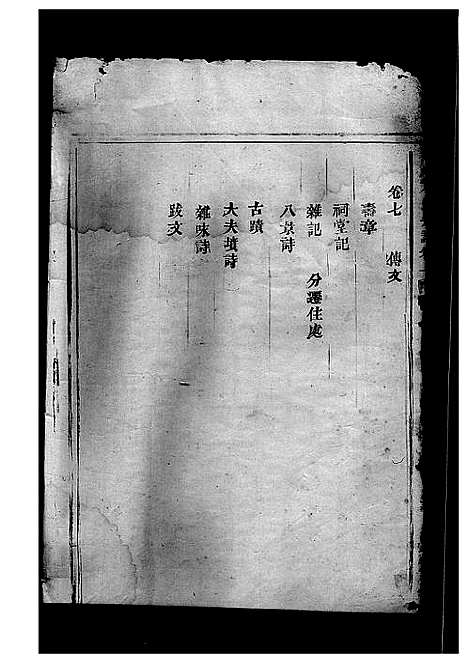 卷七 傳文
壽章
祠堂記
雜記 分遷住處
八景詩
古蹟
大夫墳詩
雜咏詩
跋文